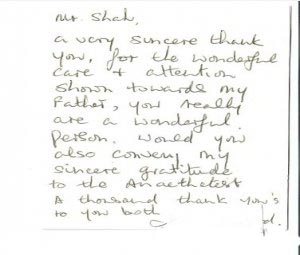 Mr. Shah,
a very sincere thank
you, for the wonderful
care + attention
shown towards my
Father, you really
are a wonderful
Person. Would you
also convey my
sincere gratitude
to the Anaethetest
A thousand thank you's
to you both